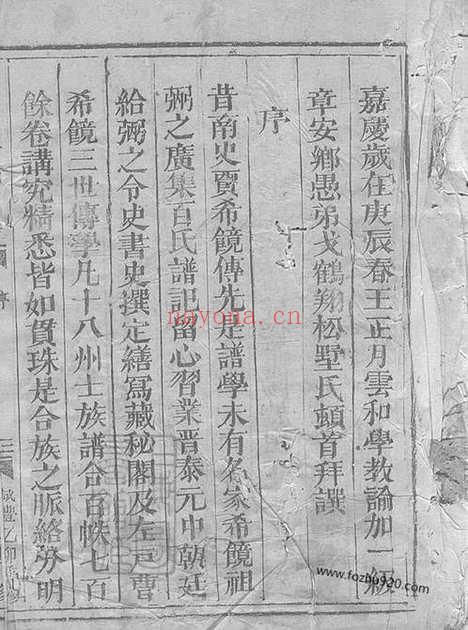 嘉慶歲在庚辰春王正月雲和學教諭加一級
章安鄉愚弟戈鶴翔松墅氏頓首拜譔
序
昔南史賈希鏡傳先是譜學未有名家希鏡祖
弼之廣集百氏譜記留心習業晉泰元中朝廷
給弼之令史書史撰定繕寫藏秘閣及左戶曹
希鏡三世傳學凡十八州士族譜合百帙七百
餘卷講究精悉皆如貫珠是合族之脈絡分明
序
咸豐乙卯
nayona.cn
www.fozhu920.com